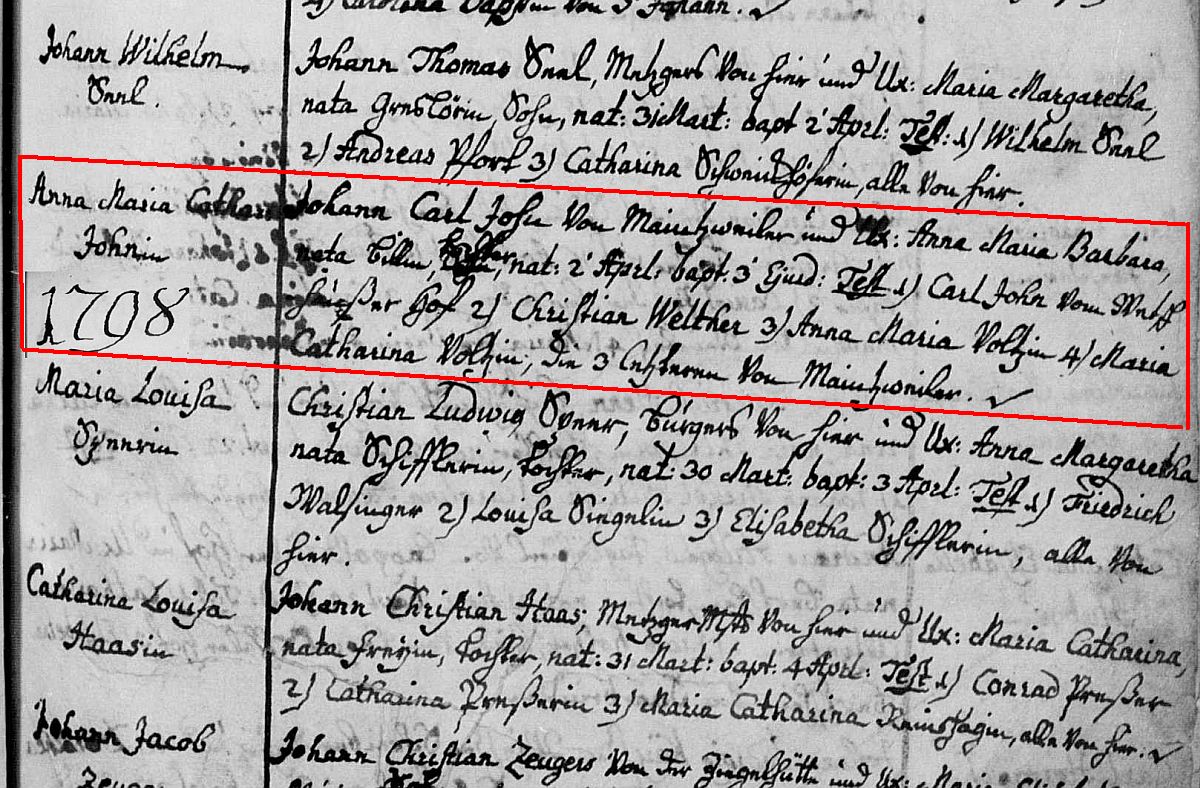 4) Carolina von S Johann.
Johann Wilhelm
Seel.
Johann Thomas Seel, Metzgers von hier und Ux: Maria Margaretha,
nata Sohn, nat: 31 Mart: bapt 2 Aprl: Test: 1) Wilhelm Seel
2) Andreas Pfort 3) Catharina alle von hier.
Anna Maria Catharina
Johnin
1708
Johann Carl John von Maintzweiler und Ux: Anna Maria Barbara,
nata Tochter, nat: 2 Aprl: bapt: 3 Ejusd: Test 1) Carl John vom
Hof 2) Christian Welther 3) Anna Maria Voltzin 4) Maria
Catharina Voltzin, die 3 Letzteren von Maintzweiler.
Maria Louisa
Christian Ludwig Bürgers von hier und Ux: Anna Margaretha
nata Schifflerin, Tochter, nat: 30 Mart: bapt: 3 Aprl: Test 1) Friedrich
Walsinger 2) Louisa Singelin 3) Elisabetha Schifflerin, alle von
hier.
Catharina Louisa
Haasin
Johann Christian Haas, Metzger von hier und Ux: Maria Catharina,
nata Freyin, Tochter, nat: 31 Mart: bapt: 4 Aprl: Test 1) Conrad Preßer
2) Catharina Preßerin 3) Maria Catharina alle von hier.
Johann Jacob
Zeuger
Johann Christian Zeugers von der Ziegelhütte und Ux: Maria